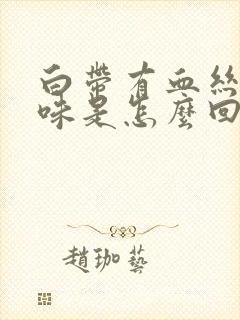 白帶有血絲
味是怎麼回
趙珈藝